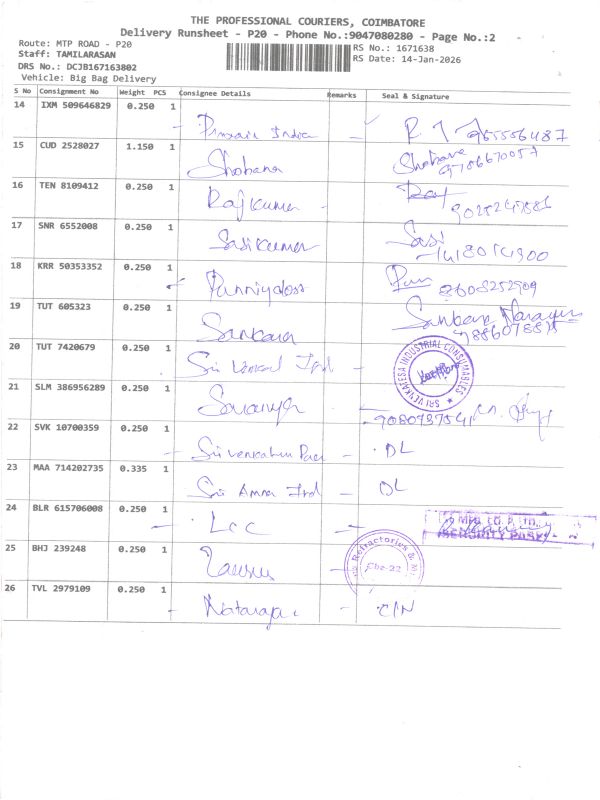 THE PROFESSIONAL COURIERS, COIMBATORE
Delivery Runsheet - P20 - Phone No.:9047080280 - Page No.:2
Route: MTP ROAD - P20
RS No.: 1671638
Staff: TAMILARASAN
RS Date: 14-Jan-2026
DRS No.: DCJB167163802
Vehicle: Big Bag Delivery
S No Consignment No Weight PCS Consignee Details Remarks Seal & Signature
14 IXM 509646829 0.250 1 India
15 CUD 2528027 1.150 1 Shobana Shobana 9786670057
16 TEN 8109412 0.250 1 Rajkumar Raj
17 SNR 6552008 0.250 1 Sasikumar Sasi
18 KRR 50353352 0.250 1 Punniydoss Pun 8608252909
19 TUT 605323 0.250 1 Sankara Sankara Narayan
20 TUT 7420679 0.250 1 Sri Venkat Ind SRI VENKATESA INDUSTRIAL CONSUMABLES
21 SLM 386956289 0.250 1 Saranya
22 SVK 10700359 0.250 1 Sri venkatum DL
23 MAA 714202735 0.335 1 Sri Amma Ind DL
24 BLR 615706008 0.250 1 SECURITY
25 BHJ 239248 0.250 1 Refractories & Cbe-22
26 TVL 2979109 0.250 1 Nataraja C/N